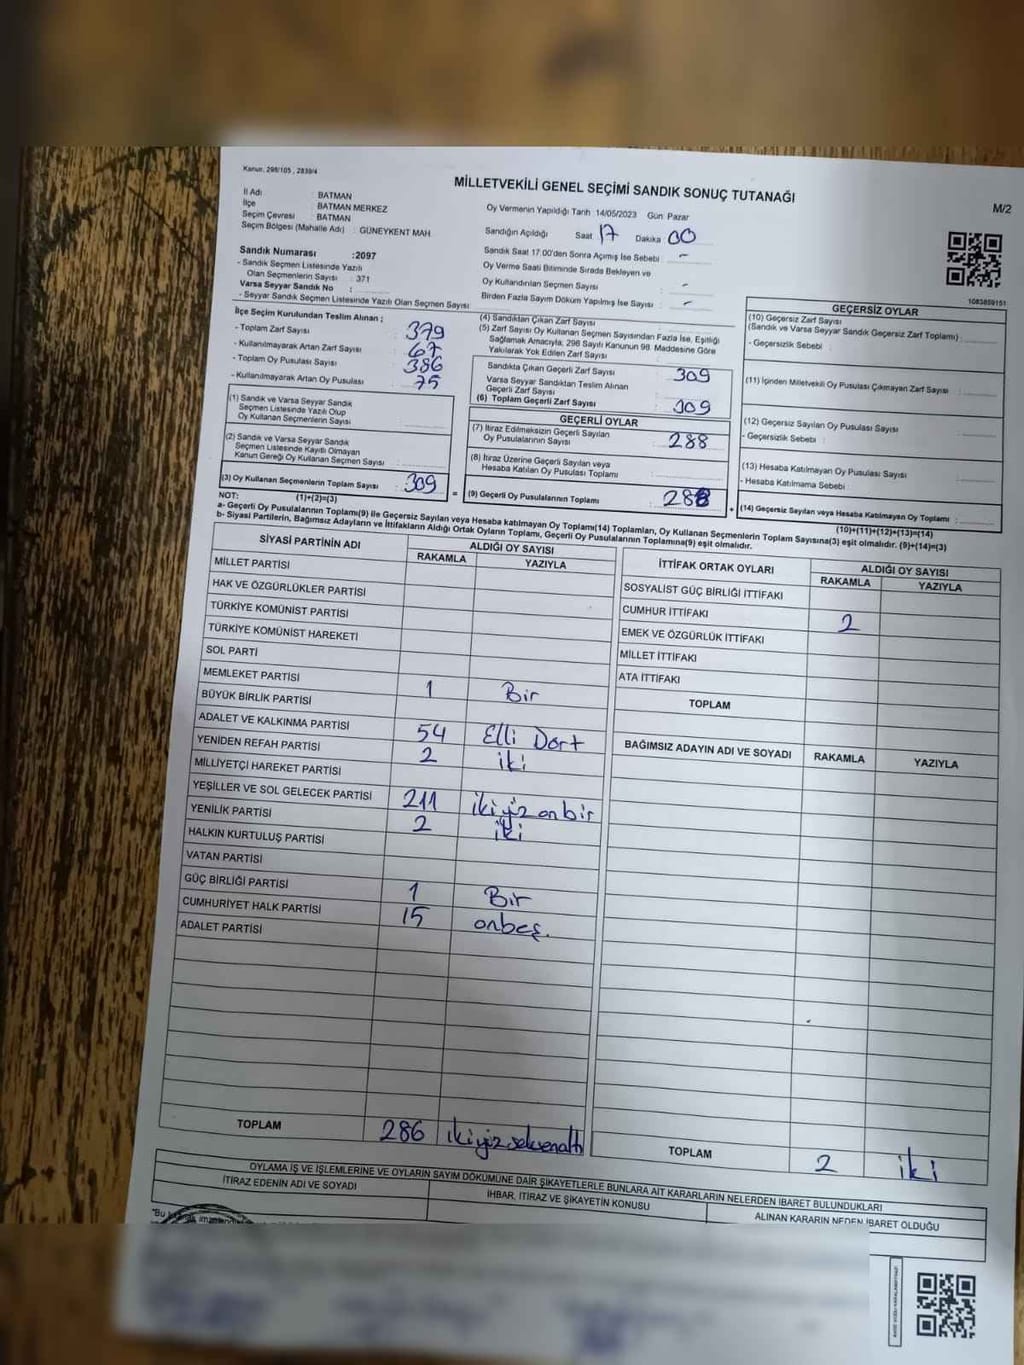 Kanun, 298/105 , 2839/4
MİLLETVEKİLİ GENEL SEÇİMİ SANDIK SONUÇ TUTANAĞI
M/2
İl Adı : BATMAN
İlçe : BATMAN MERKEZ
Seçim Çevresi : BATMAN
Seçim Bölgesi (Mahalle Adı) : GÜNEYKENT MAH.
Oy Vermenin Yapıldığı Tarih 14/05/2023 Gün: Pazar
Sandığın Açıldığı Saat 17 Dakika 00
Sandık Saat 17:00'den Sonra Açmış İse Sebebi : -
Oy Verme Saati Bitiminde Sırada Bekleyen ve
Oy Kullandırılan Seçmen Sayısı : -
Birden Fazla Sayım Döküm Yapılmış İse Sayısı : -
1083859151
Sandık Numarası :2097
- Sandık Seçmen Listesinde Yazılı
Olan Seçmenlerin Sayısı : 371
Varsa Seyyar Sandık No :
- Seyyar Sandık Seçmen Listesinde Yazılı Olan Seçmen Sayısı
İlçe Seçim Kurulundan Teslim Alınan ;
- Toplam Zarf Sayısı : 379
- Kullanılmayarak Artan Zarf Sayısı : 67
- Toplam Oy Pusulası Sayısı : 386
- Kullanılmayarak Artan Oy Pusulası : 75
(1) Sandık ve Varsa Seyyar Sandık
Seçmen Listesinde Yazılı Olup
Oy Kullanan Seçmenlerin Sayısı :
(2) Sandık ve Varsa Seyyar Sandık
Seçmen Listesinde Kayıtlı Olmayan
Kanun Gereği Oy Kullanan Seçmen Sayısı :
(3) Oy Kullanan Seçmenlerin Toplam Sayısı : 309
(1)+(2)=(3)
(4) Sandıktan Çıkan Zarf Sayısı
(5) Zarf Sayısı Oy Kullanan Seçmen Sayısından Fazla İse, Eşitliği
Sağlamak Amacıyla, 298 Sayılı Kanunun 98. Maddesine Göre
Yakılarak Yok Edilen Zarf Sayısı
Sandıkta Çıkan Geçerli Zarf Sayısı : 309
Varsa Seyyar Sandıktan Teslim Alınan
Geçerli Zarf Sayısı
(6) Toplam Geçerli Zarf Sayısı : 309
GEÇERLİ OYLAR
(7) İtiraz Edilmeksizin Geçerli Sayılan
Oy Pusulalarının Sayısı : 288
(8) İtiraz Üzerine Geçerli Sayılan veya
Hesaba Katılan Oy Pusulası Toplamı :
= (9) Geçerli Oy Pusulalarının Toplamı : 288 +
GEÇERSİZ OYLAR
(10) Geçersiz Zarf Sayısı
(Sandık ve Varsa Seyyar Sandık Geçersiz Zarf Toplamı) :
- Geçersizlik Sebebi :
(11) İçinden Milletvekili Oy Pusulası Çıkmayan Zarf Sayısı :
(12) Geçersiz Sayılan Oy Pusulası Sayısı :
- Geçersizlik Sebebi :
(13) Hesaba Katılmayan Oy Pusulası Sayısı :
- Hesaba Katılmama Sebebi :
(14) Geçersiz Sayılan veya Hesaba Katılmayan Oy Toplamı :
(10)+(11)+(12)+(13)=(14)
NOT:
a- Geçerli Oy Pusulalarının Toplamı(9) ile Geçersiz Sayılan veya Hesaba katılmayan Oy Toplamı(14) Toplamları, Oy Kullanan Seçmenlerin Toplam Sayısına(3) eşit olmalıdır. (9)+(14)=(3)
b- Siyasi Partilerin, Bağımsız Adayların ve İttifakların Aldığı Ortak Oyların Toplamı, Geçerli Oy Pusulalarının Toplamına(9) eşit olmalıdır.
SİYASİ PARTİNİN ADI ALDIĞI OY SAYISI
RAKAMLA YAZIYLA
MİLLET PARTİSİ
HAK VE ÖZGÜRLÜKLER PARTİSİ
TÜRKİYE KOMÜNİST PARTİSİ
TÜRKİYE KOMÜNİST HAREKETİ
SOL PARTİ
MEMLEKET PARTİSİ 1 Bir
BÜYÜK BİRLİK PARTİSİ
ADALET VE KALKINMA PARTİSİ 54 Elli Dört
YENİDEN REFAH PARTİSİ 2 iki
MİLLİYETÇİ HAREKET PARTİSİ
YEŞİLLER VE SOL GELECEK PARTİSİ 211 ikiyüz onbir
YENİLİK PARTİSİ 2 iki
HALKIN KURTULUŞ PARTİSİ
VATAN PARTİSİ
GÜÇ BİRLİĞİ PARTİSİ 1 Bir
CUMHURİYET HALK PARTİSİ 15 onbeş.
ADALET PARTİSİ
TOPLAM 286 ikiyüz seksenaltı
İTTİFAK ORTAK OYLARI ALDIĞI OY SAYISI
RAKAMLA YAZIYLA
SOSYALİST GÜÇ BİRLİĞİ İTTİFAKI
CUMHUR İTTİFAKI 2
EMEK VE ÖZGÜRLÜK İTTİFAKI
MİLLET İTTİFAKI
ATA İTTİFAKI
TOPLAM
BAĞIMSIZ ADAYIN ADI VE SOYADI RAKAMLA YAZIYLA
TOPLAM 2 iki
OYLAMA İŞ VE İŞLEMLERİNE VE OYLARIN SAYIM DÖKÜMÜNE DAİR ŞİKAYETLERLE BUNLARA AİT KARARLARIN NELERDEN İBARET BULUNDUKLARI
İTİRAZ EDENİN ADI VE SOYADI
İHBAR, İTİRAZ VE ŞİKAYETİN KONUSU
ALINAN KARARIN NEDEN İBARET OLDUĞU
"Bu